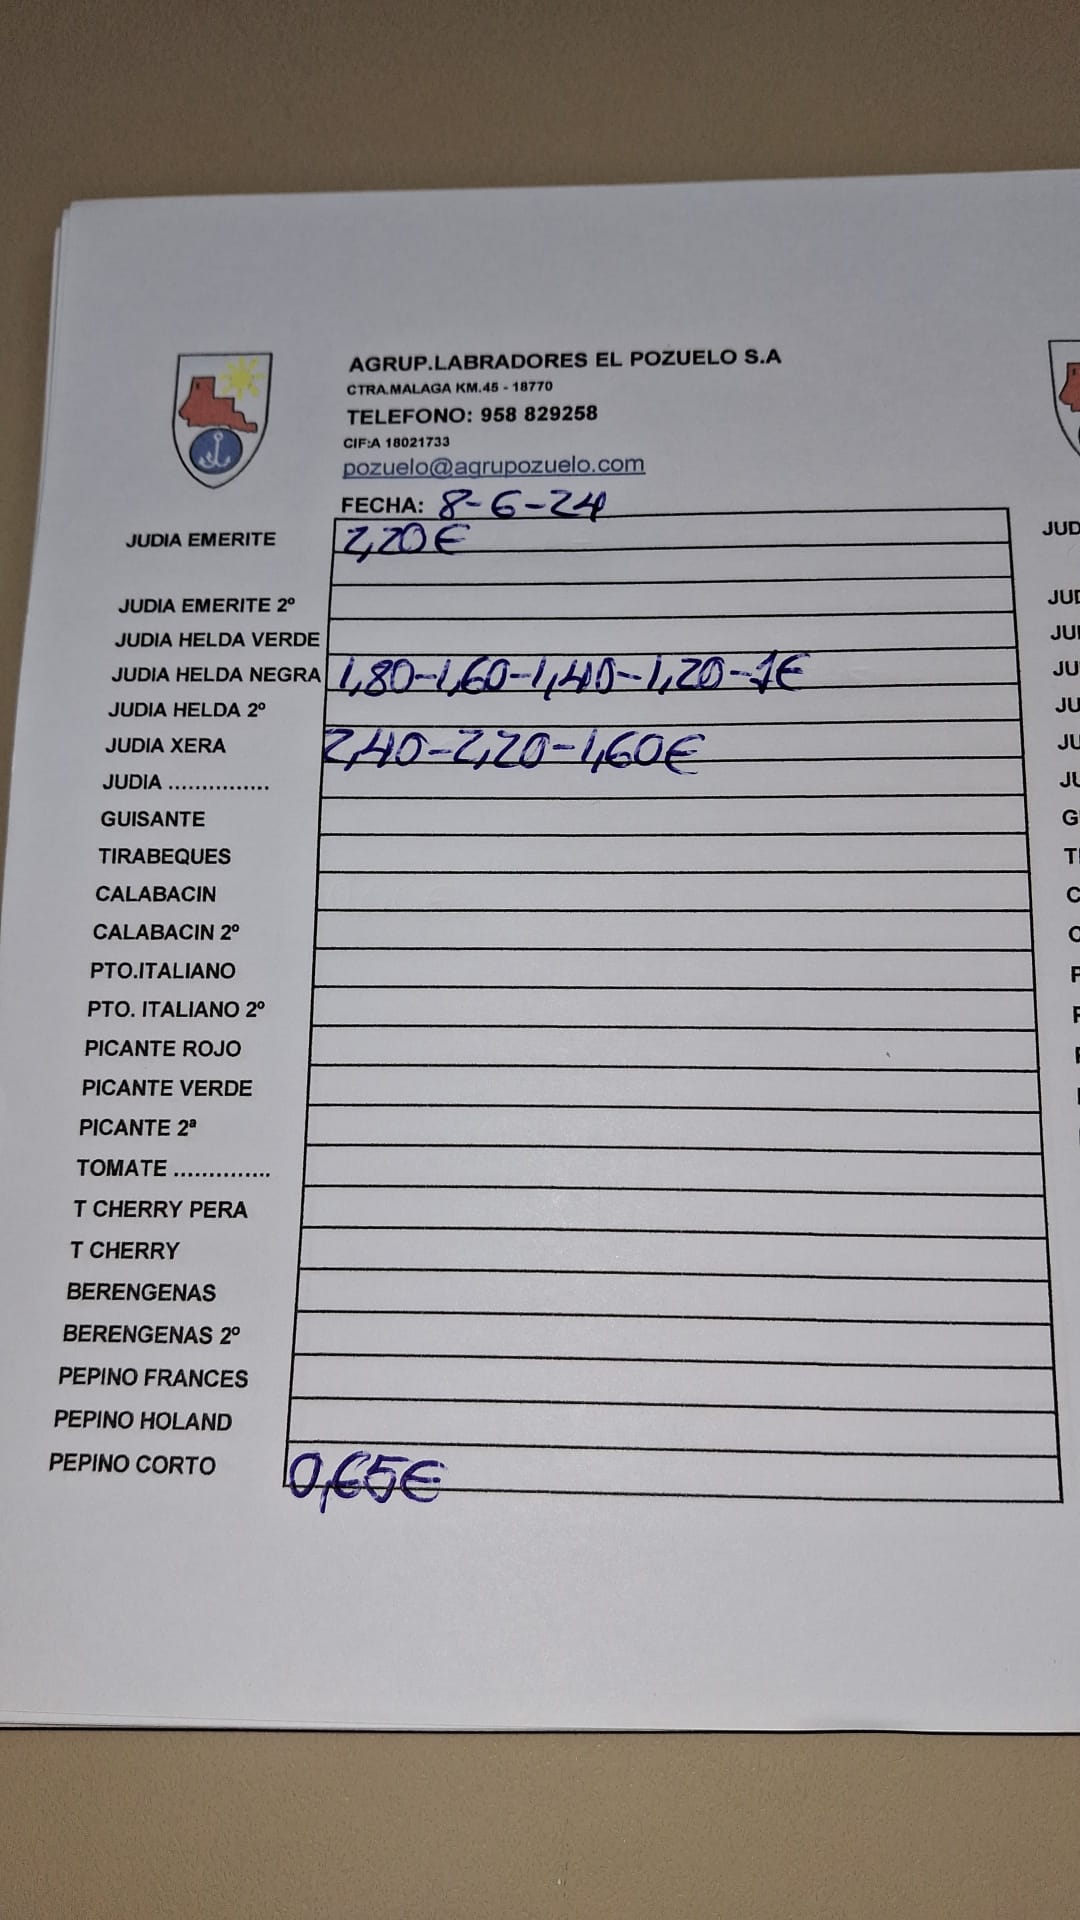 AGRUP.LABRADORES EL POZUELO S.A
CTRA.MALAGA KM.45 - 18770
TELEFONO: 958 829258
CIF:A 18021733
pozuelo@agrupozuelo.com
FECHA: 8-6-24
JUDIA EMERITE 2,20€
JUDIA EMERITE 2º
JUDIA HELDA VERDE
JUDIA HELDA NEGRA 1,80-1,60-1,40-1,20-1€
JUDIA HELDA 2º
JUDIA XERA 2,40-2,20-1,60€
JUDIA ...............
GUISANTE
TIRABEQUES
CALABACIN
CALABACIN 2º
PTO.ITALIANO
PTO. ITALIANO 2º
PICANTE ROJO
PICANTE VERDE
PICANTE 2ª
TOMATE ..............
T CHERRY PERA
T CHERRY
BERENGENAS
BERENGENAS 2º
PEPINO FRANCES
PEPINO HOLAND
PEPINO CORTO 0,65€